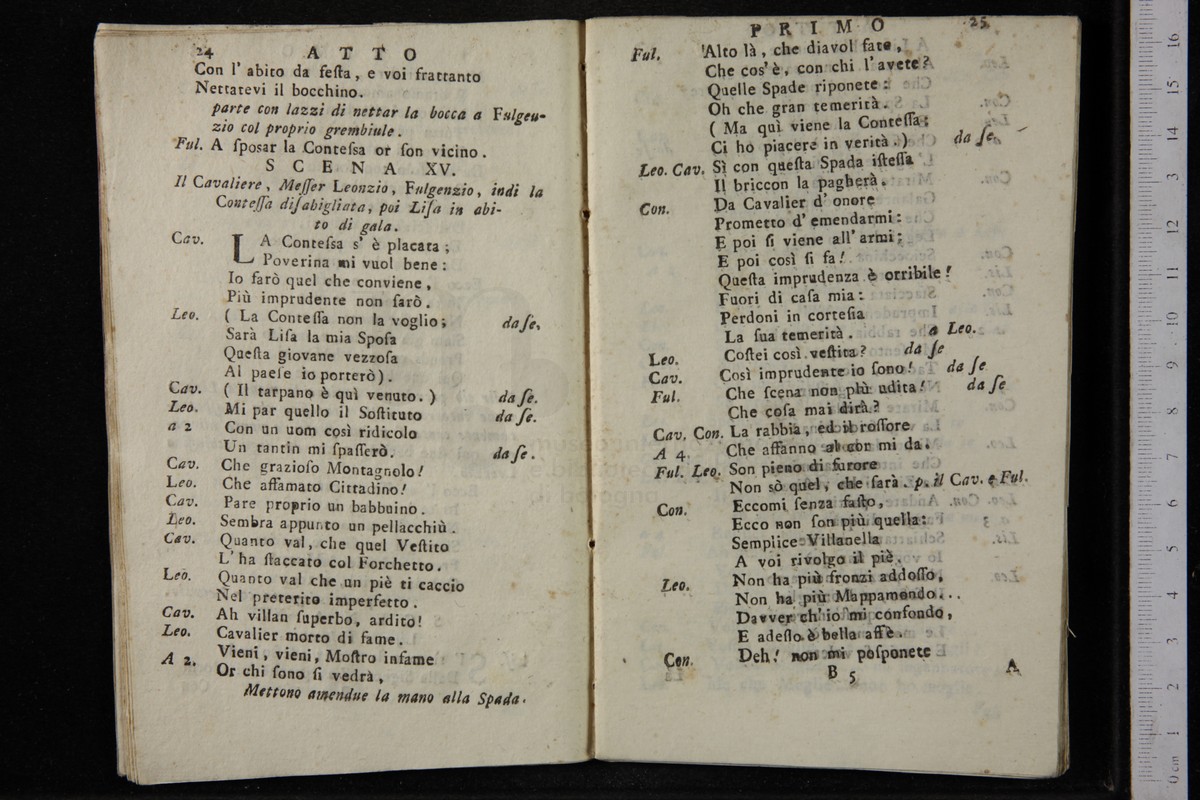 24 ATTO
Con l' abito da feſta, e voi frattanto
Nettatevi il bocchino.
parte con lazzi di nettar la bocca a Fulgeu-
zio col proprio grembiule.
Ful. A ſpoſar la Conteſsa or ſon vicino.
SCENA XV.
Il Cavaliere, Meſſer Leonzio, Fulgenzio, indi la
Conteſſa diſabigliata, poi Liſa in abi-
to di gala.
Cav. LA Conteſsa s' è placata;
Poverina mi vuol bene:
Io farò quel che conviene,
Più imprudente non ſarò.
Leo. ( La Conteſſa non la voglio; da ſe,
Sarà Liſa la mia Spoſa
Queſta giovane vezzoſa
Al paeſe io porterò).
Cav. ( Il tarpano è quì venuto. ) da ſe.
Leo. Mi par quello il Soſtituto da ſe.
a 2 Con un uom così ridicolo
Un tantin mi ſpaſſerò. da ſe.
Cav. Che grazioſo Montagnolo!
Leo. Che affamato Cittadino!
Cav. Pare proprio un babbuino.
Leo. Sembra appunto un pellacchiù.
Cav. Quanto val, che quel Veſtito
L' ha ſtaccato col Forchetto.
Leo. Quanto val che un piè ti caccio
Nel preterito imperfetto.
Cav. Ah villan ſuperbo, ardito!
Leo. Cavalier morto di fame.
A 2. Vieni, vieni, Moſtro infame
Or chi ſono ſi vedrà,
Mettono amendue la mano alla Spada.
PRIMO 25
Ful. Alto là, che diavol fate,
Che cos' è, con chi l' avete?
Quelle Spade riponete:
Oh che gran temerità.
( Ma quì viene la Conteſſa;
Ci ho piacere in verità.) da ſe.
Leo. Cav. Sì con queſta Spada iſteſſa
Il briccon la pagherà.
Con. Da Cavalier d' onore
Prometto d' emendarmi:
E poi ſi viene all' armi;
E poi così ſi fa!
Queſta imprudenza è orribile!
Fuori di caſa mia:
Perdoni in corteſia
La ſua temerità. a Leo.
Leo. Coſtei così veſtita? da ſe
Cav. Così imprudente io ſono! da ſe
Ful. Che ſcena non più udita! da ſe
Che coſa mai dirà?
Cav. Con. La rabbia, ed il roſſore
A 4. Che affanno al cor mi da.
Ful. Leo. Son pieno di furore
Non sò quel, che ſarà. p. il Cav. e Ful.
Con. Eccomi ſenza faſto,
Ecco non ſon più quella:
Semplice Villanella
A voi rivolgo il piè.
Leo. Non ha più fronzi addoſſo,
Non ha più Mappamondo...
Davver ch' io mi confondo,
E adeſſo è bella affè.
Con. Deh! non mi poſponete
B 5 A